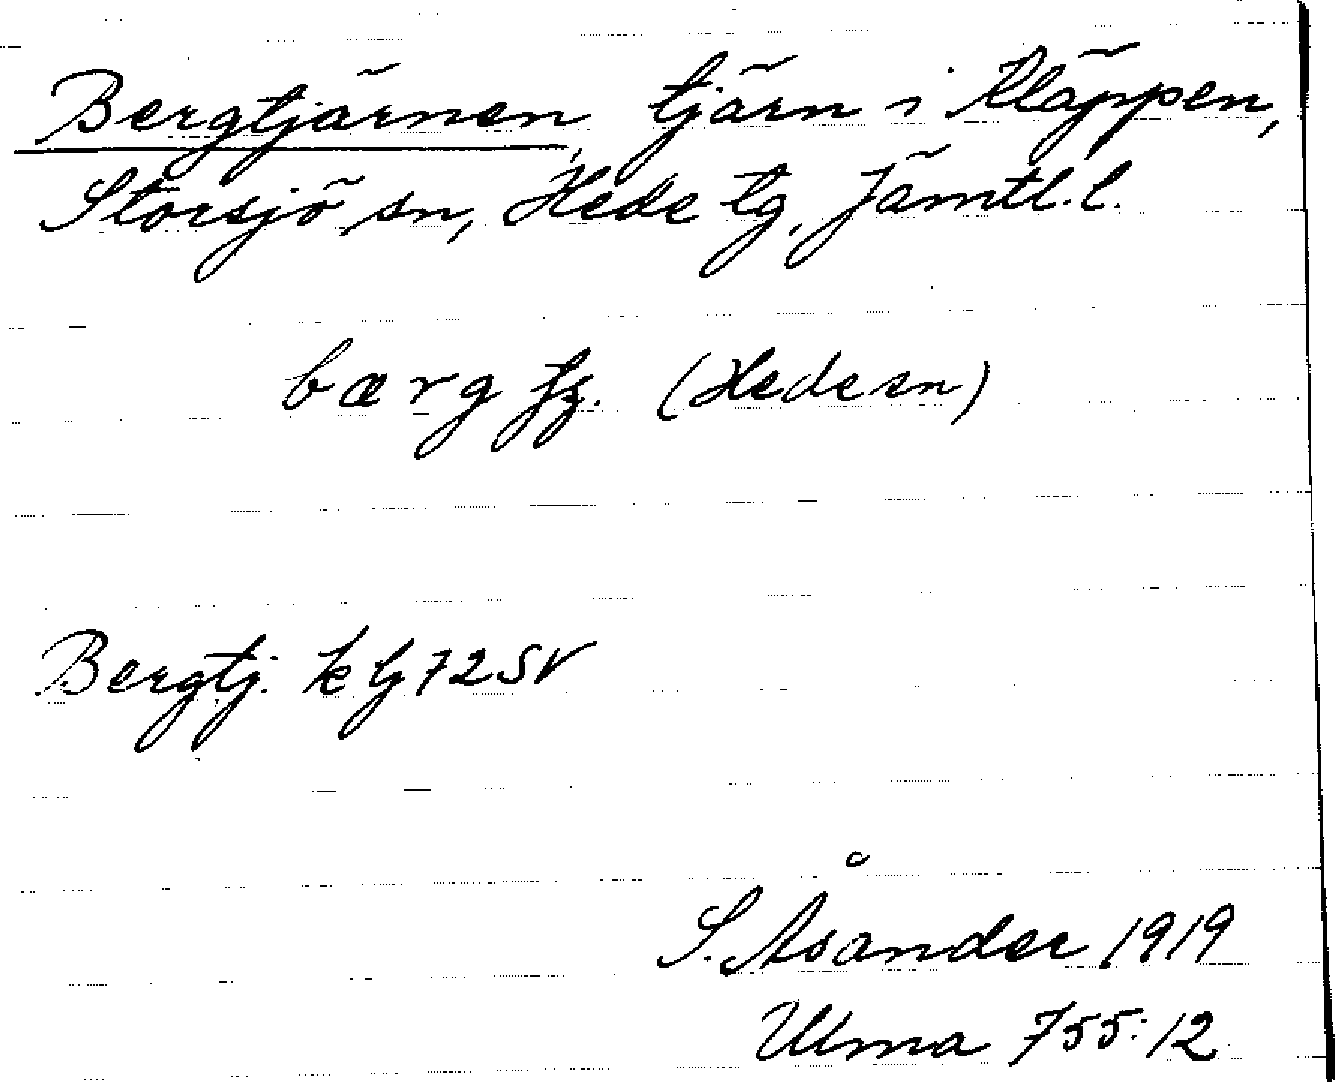 Bergtjärnen, tjärn i Kläppen,
Storsjö sn, Hede tg, Jämtl. l.
bærg (Hede sn)
Bergtj. k bj 72 SV
S. Åsander 1919
Ulma 755:12